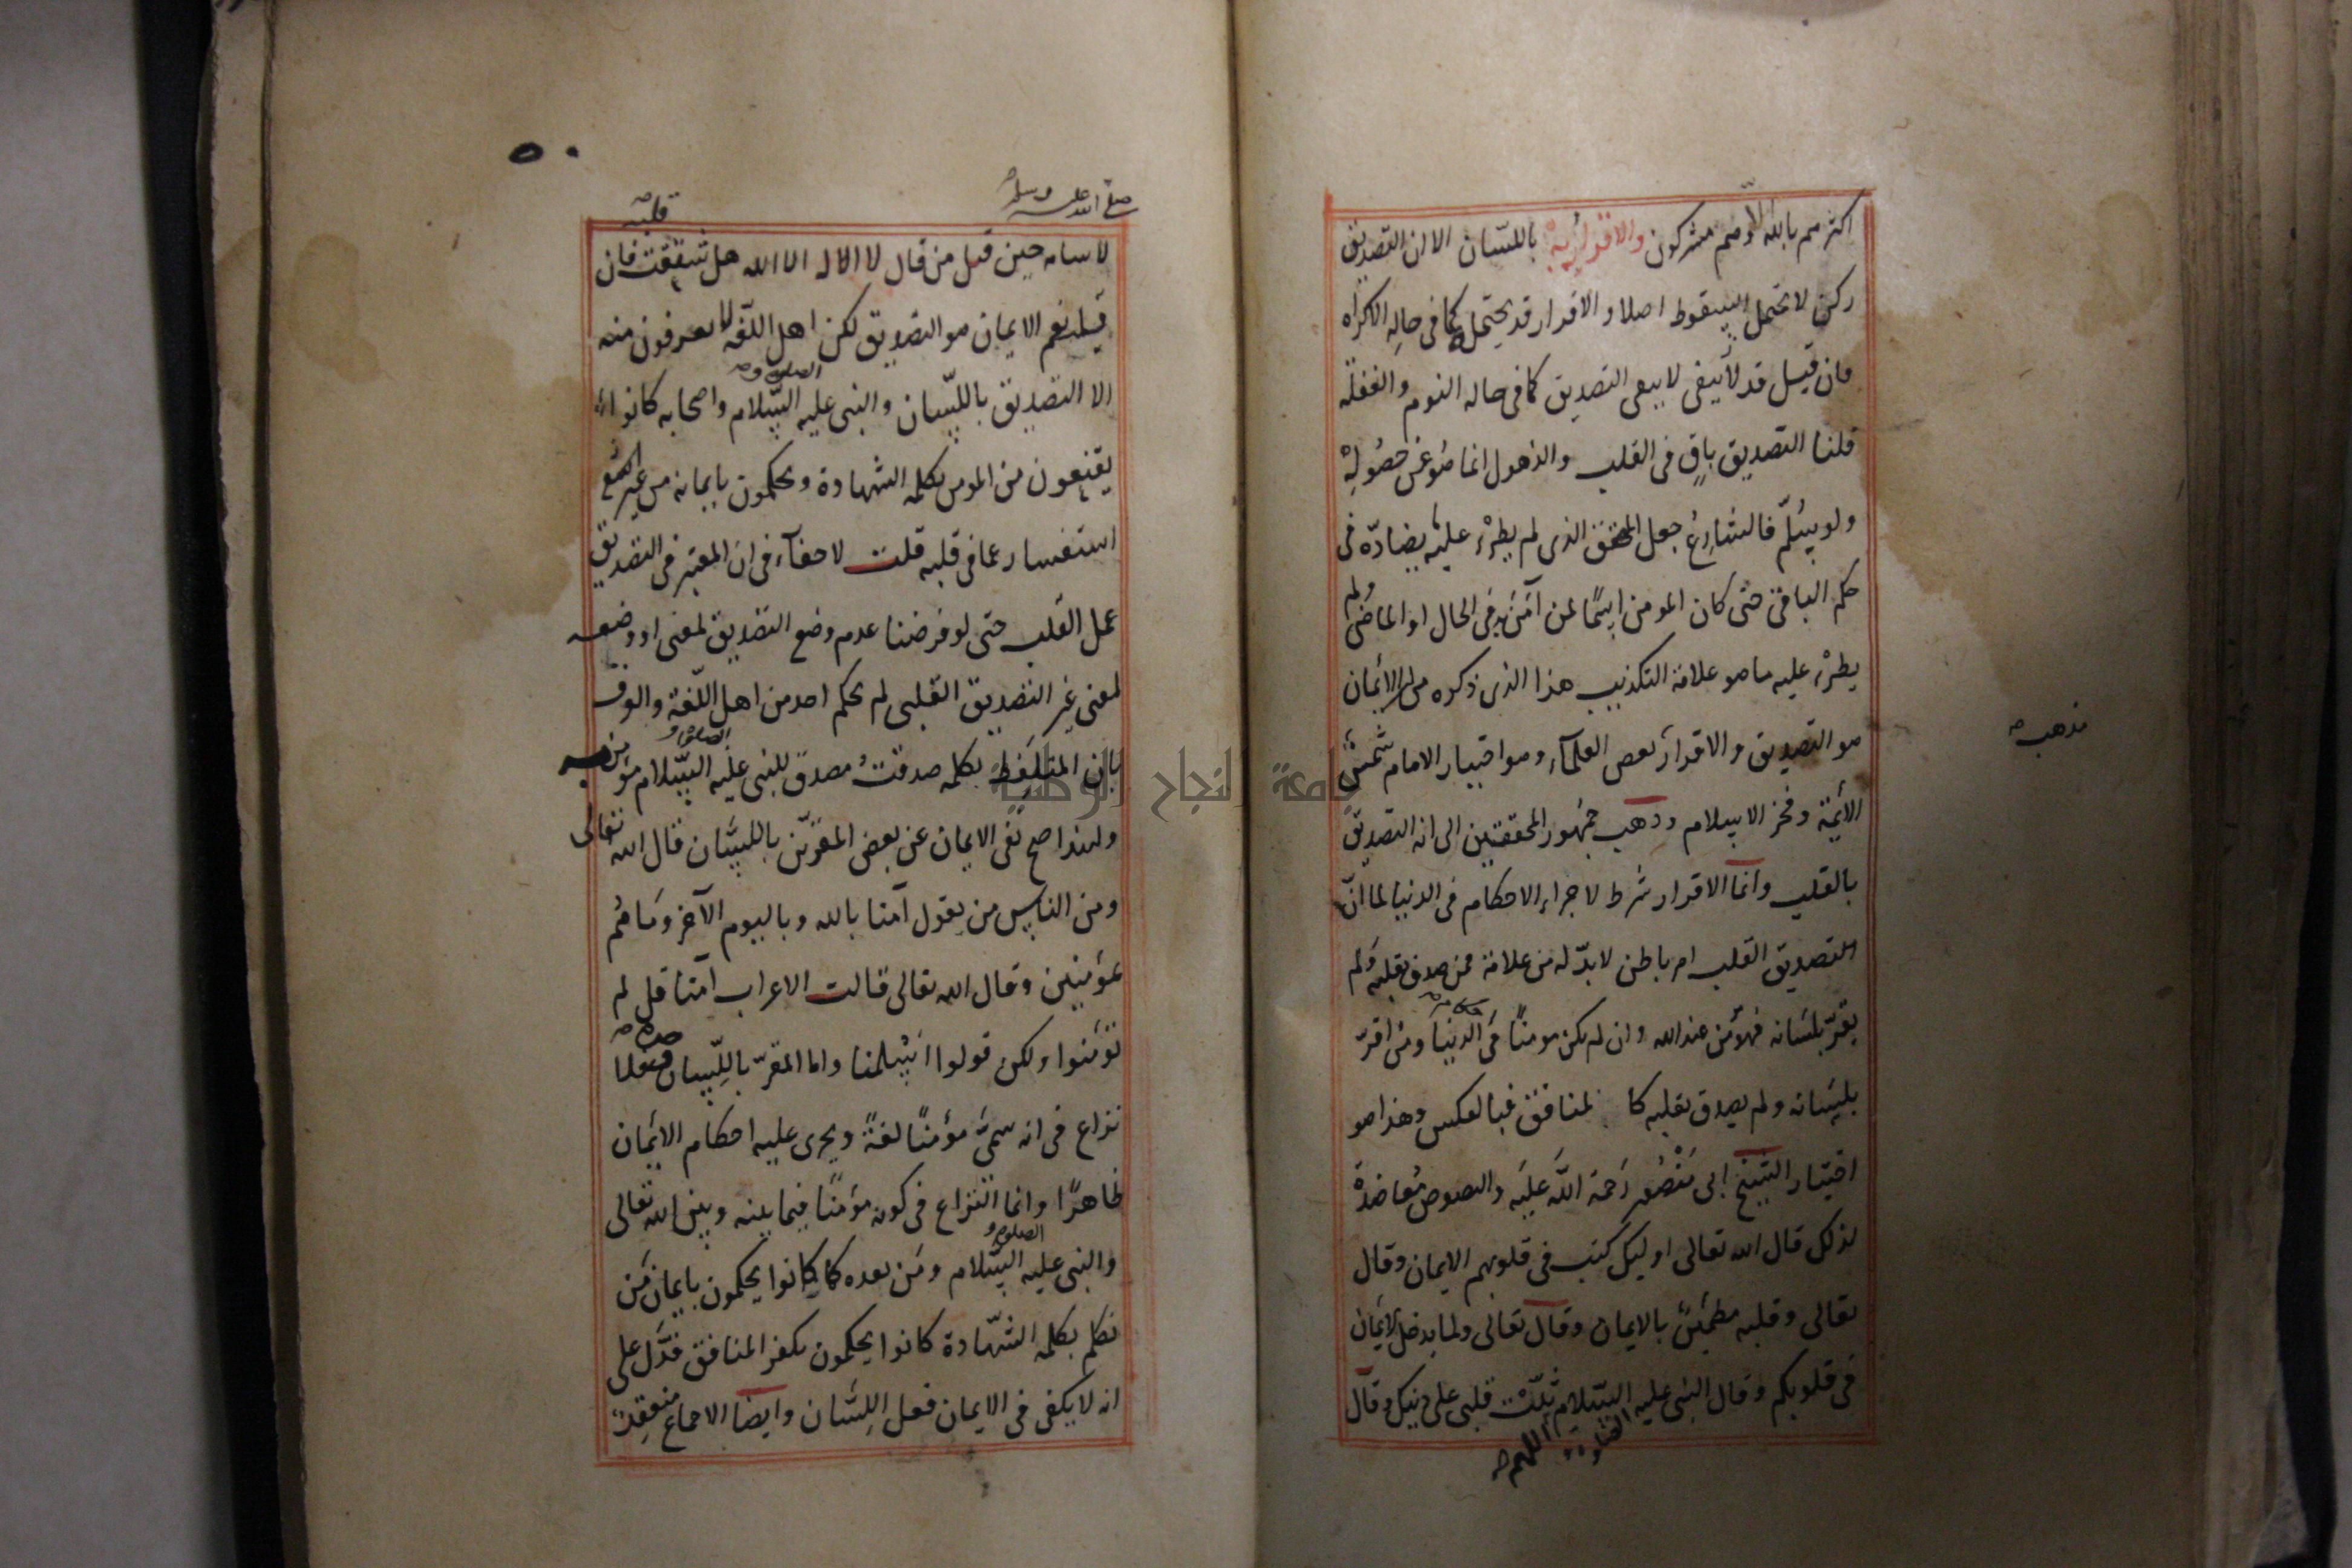 اكثرهم بالله الا وهم مشركون والاقرار به باللسان الا ان التصديق
ركن لا يحتمل السقوط اصلا والاقرار قد يحتمله كما في حالة الاكراه
فان قيل قد لا يبقى التصديق كما في حالة النوم والغفلة
قلنا التصديق باقٍ في القلب والذهول انما هو عن حصوله
ولو سُلّم فالشارع جعل المحقق الذي لم يطرء عليه ما يضادّه في
حكم الباقي حتى كان المومن اسمًا لمن آمن في الحال او الماضي ولم
يطرء عليه ما هو علامة التكذيب هذا الذي ذكره من ان الايمان
هو التصديق والاقرار بعض العلماء وهو اختيار الامام شمس
مذهب صح
الأئمة وفخر الاسلام وذهب جمهور المحققين الى انه التصديق
بالقلب وانما الاقرار شرط لاجراء الاحكام في الدنيا لما ان
التصديق القلب امر باطن لا بدّ له من علامة فمن صدق بقلبه ولم
يقرّ بلسانه فهو مؤمن عند الله وان لم يكن مومنًا في الدنيا ومن اقرّ
بلسانه ولم يصدق بقلبه كالمنافق فبالعكس وهذا هو
اختيار الشيخ ابى منصور رحمة الله عليه والنصوص معاضدة
لذلك قال الله تعالى اوليك كتب في قلوبهم الايمان وقال
تعالى وقلبه مطمئن بالايمان وقال تعالى ولما يدخل الايمان
في قلوبكم وقال النبي عليه السلام ثبّت قلبي على دينك وقال
الصلوة و
اللهم صح
٥٠
صلى الله عليه وسلم
قلبه صح
لاسامه حين قتل من قال لا اله الا الله هل شققت فان
قيل نعم الايمان هو التصديق لكن اهل اللغة لا يعرفون منه
الا التصديق باللسان والنبي عليه الصلوة و السلام واصحابه كانوا
يقنعون من المومن بكلمه الشهادة ويحكمون بايمانه من غير
استفسار عما في قلبه قلت لا خفاء في ان المعتبر في التصديق
عمل القلب حتى لو فرضنا عدم وضع التصديق لمعنى او وضعه
لمعنى غير التصديق القلبى لم يحكم احد من اهل اللغة والعرف
بان المتلفظ بكلمه صدقت مصدق للنبي عليه الصلوة و السلام مؤمن به
ولهذا صح نفى الايمان عن بعض المقرّين باللسان قال الله تعالى
ومن الناس من يقول آمنا بالله وباليوم الآخر وما هم
بمؤمنين وقال الله تعالى قالت الاعراب آمنا قل لم
تؤمنوا ولكن قولوا اسلمنا واما المقرّ باللسان وحده فلا
نزاع في انه سمى مؤمنًا لغةً ويجرى عليه احكام الايمان
ظاهرًا وانما النزاع في كونه مؤمنًا فيما بينه وبين الله تعالى
والنبي عليه الصلوة و السلام ومن بعده كما كانوا يحكمون بايمان من
تكلم بكلمه الشهادة كانوا يحكمون بكفر المنافق فدل على
انه لا يكفى في الايمان فعل اللسان وايضا الاجماع منعقد
جامعة النجاح الوطنية